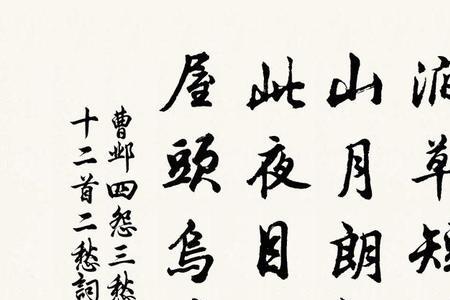 草短
山月朗
此夜目
屋頭烏
曹邺四怨三愁
十二首二愁詞